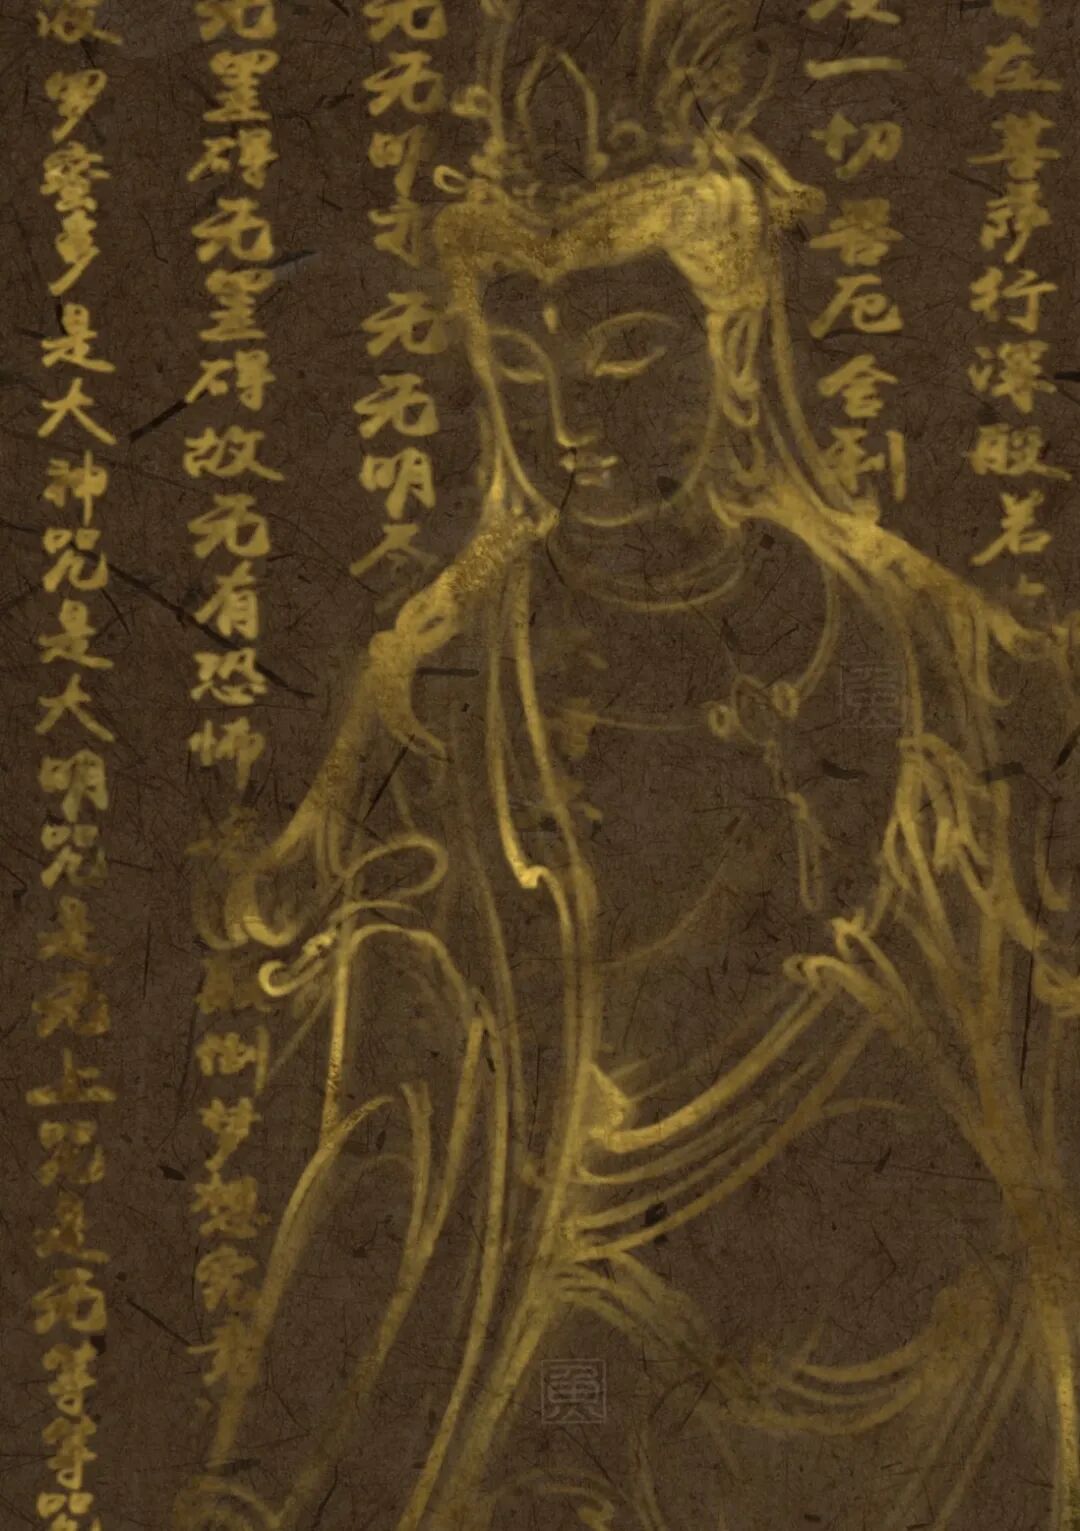 在菩萨行深般若
度一切苦厄舍利
无无明亦无无明尽
无罣碍无罣碍故无有恐怖倒梦想究竟
波罗蜜多是大神咒是大明咒是无上咒是无等等咒